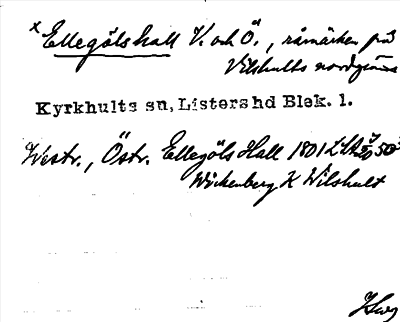 x Ellegölshall V. och Ö., råmärken på
Vilshults nordgräns
Kyrkhults sn, Listers hd Blek. l.
Westr., Östr. Ellegöls Hall 1801 LSA
Wickenberg K Wilshult